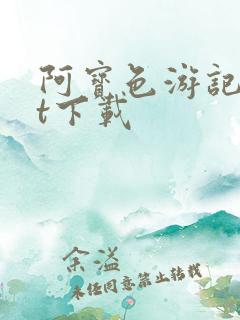 阿宝色游記
t下載
余溢
未经同意禁止转载